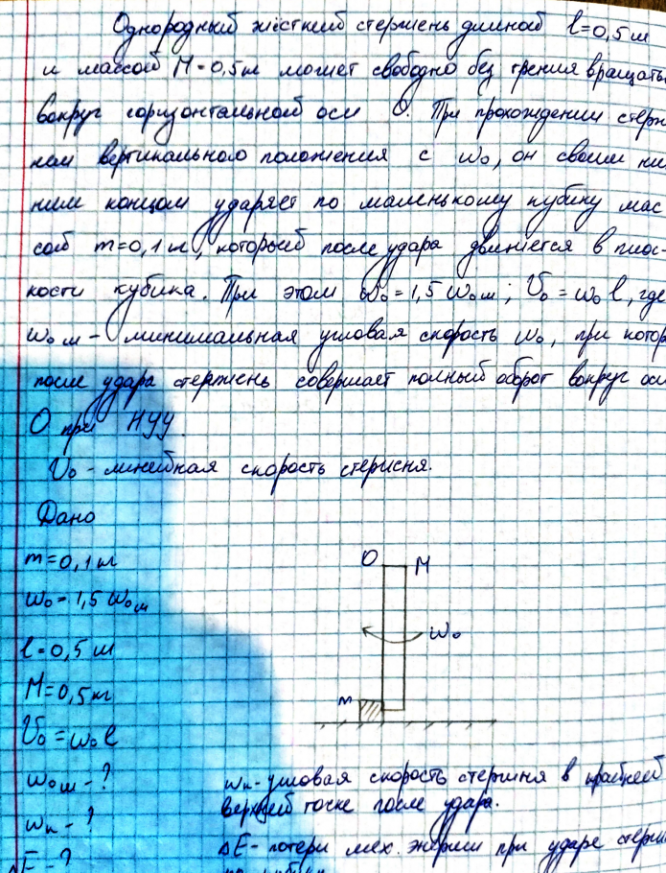 Однородный жёсткий стержень длиной l=0,5 м
и массой M=0,5 кг может свободно без трения вращать
вокруг горизонтальной оси О. При прохождении стерж
нем вертикального положения с ω₀, он своим ни
ним концом ударяет по маленькому кубику мас
сой m=0,1 кг, который после удара движется в плос-
кости кубика. При этом ω₀=1,5 ω₀м; V₀=ω₀l, где
ω₀м - минимальная угловая скорость ω₀, при котор
после удара стержень совершает полный оборот вокруг оси
О при НУУ.
V₀ - линейная скорость стержня.
Дано
m=0,1 кг
ω₀=1,5 ω₀м
l=0,5 м
M=0,5 кг
V₀=ω₀l
ω₀м - ?
ωк - ?
ΔE - ?
О M
ω₀
m
ωк - угловая скорость стержня в крайней
верхней точке после удара.
ΔE - потери мех. энергии при ударе стерж